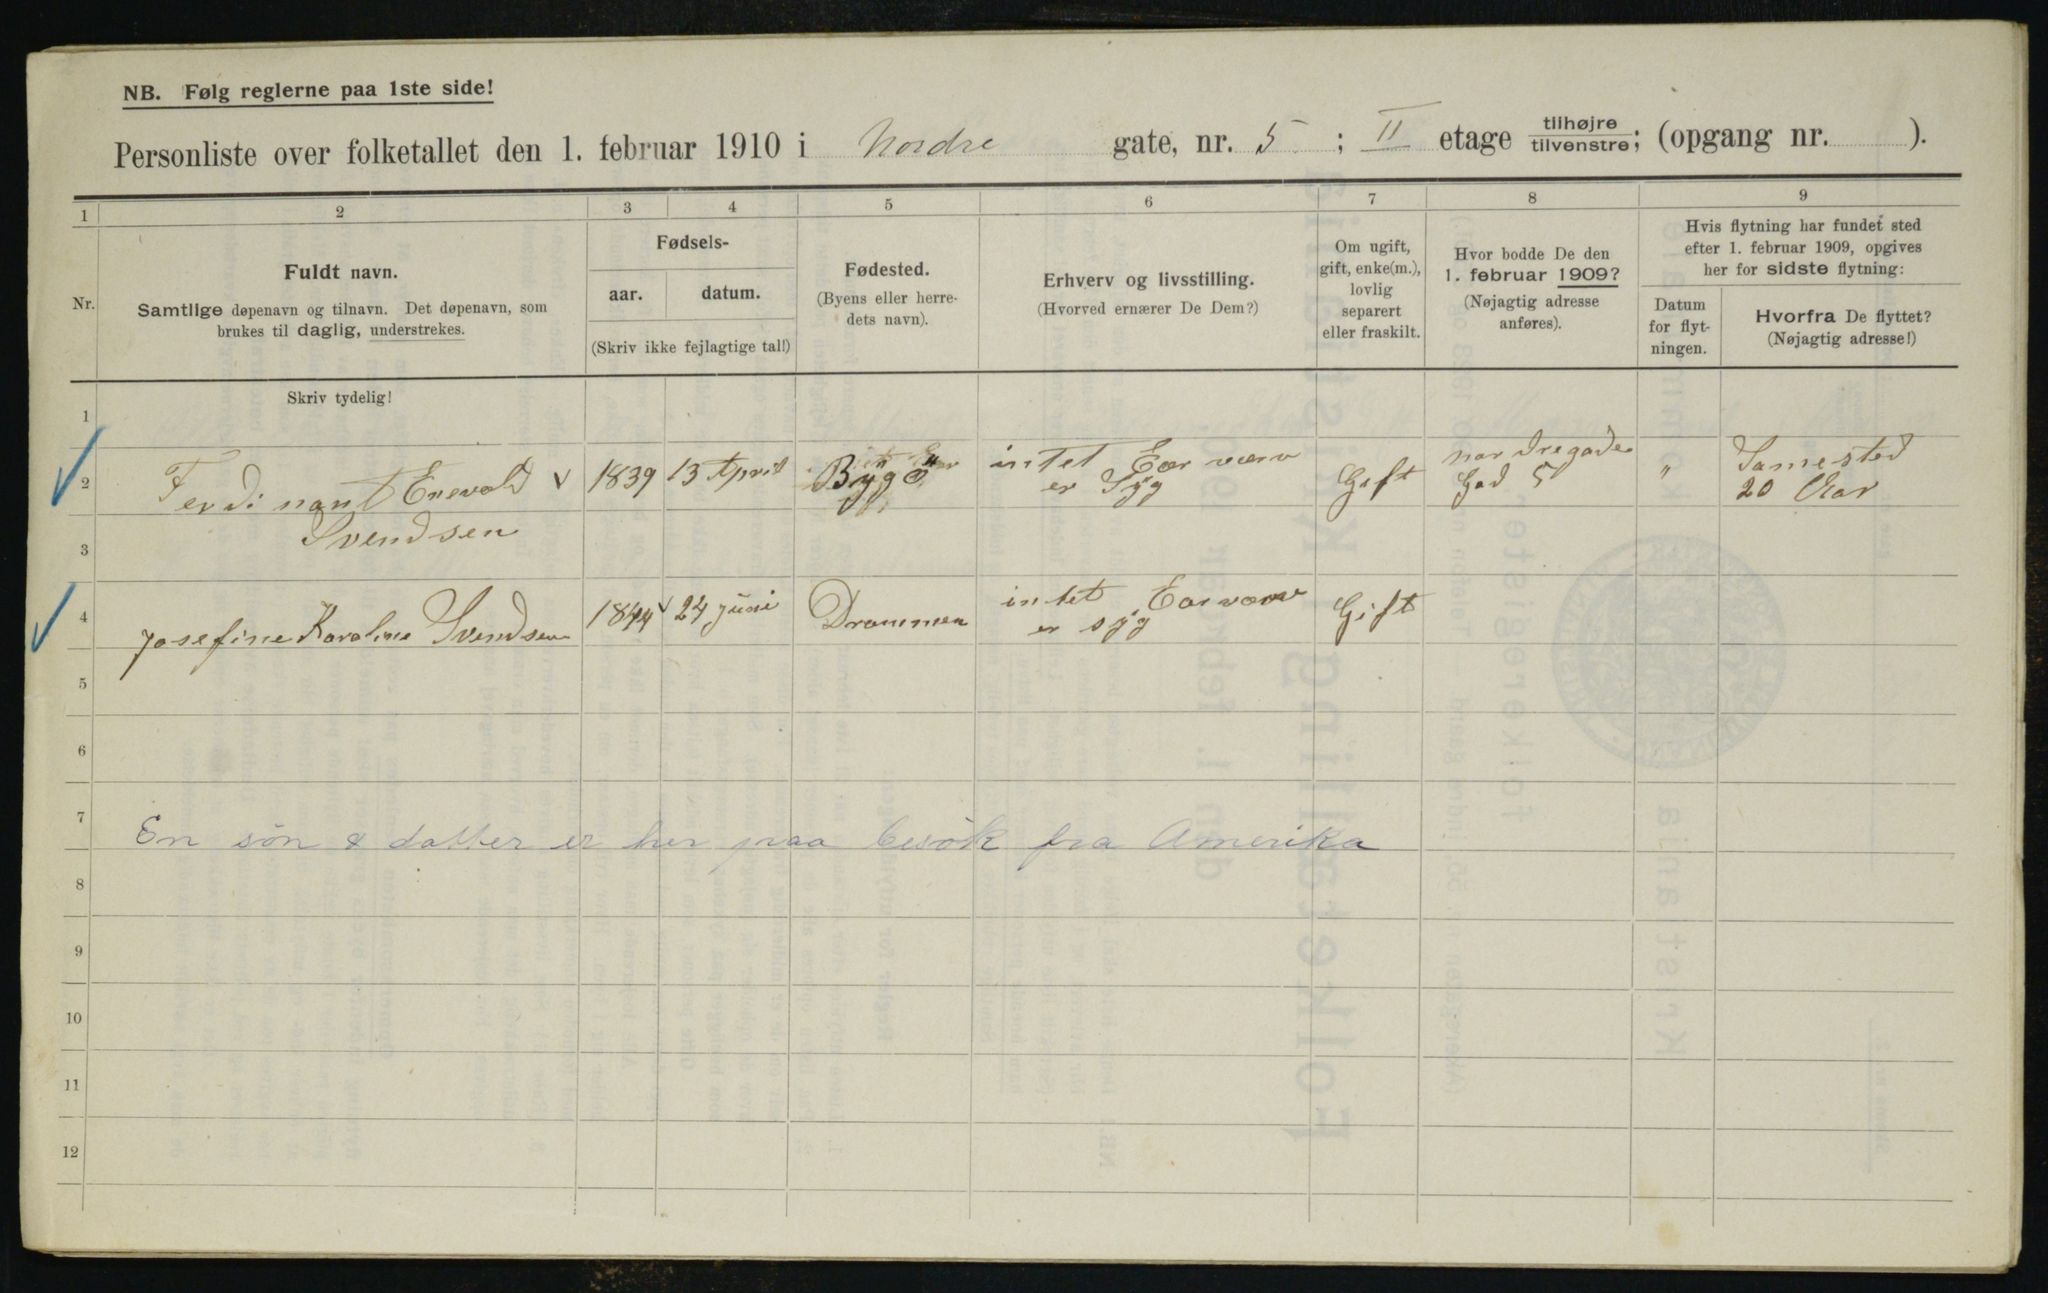 NB. Følg reglerne paa 1ste side!
Personliste over folketallet den 1. februar 1910 i Nordre gate, nr. 5 ; II etage tilhøjre/tilvenstre; (opgang nr. ).
1 2 3 4 5 6 7 8 9
Nr.
Fuldt navn.
Samtlige døpenavn og tilnavn. Det døpenavn, som
brukes til daglig, understrekes.
Fødsels-
aar. datum.
(Skriv ikke fejlagtige tal!)
Fødested.
(Byens eller herre-
dets navn).
Erhverv og livsstilling.
(Hvorved ernærer De Dem?)
Om ugift,
gift, enke(m.),
lovlig
separert
eller fraskilt.
Hvor bodde De den
1. februar 1909?
(Nøjagtig adresse
anføres).
Hvis flytning har fundet sted
efter 1. februar 1909, opgives
her for sidste flytning:
Datum
for flyt-
ningen.
Hvorfra De flyttet?
(Nøjagtig adresse!)
Skriv tydelig!
1
2 Ferdinant Enevold 1839 13 April Bygö intet Eær værv er Syg Gift nordregade Gad 5 " Samested 20 Aar
3 Svendsen
4 Josefine Karoline Svendsen 1844 24 juni Drammen intet Earværv er syg Gift
5
6
7 En søn & datter er her paa besök fra Amerika
8
9
10
11
12